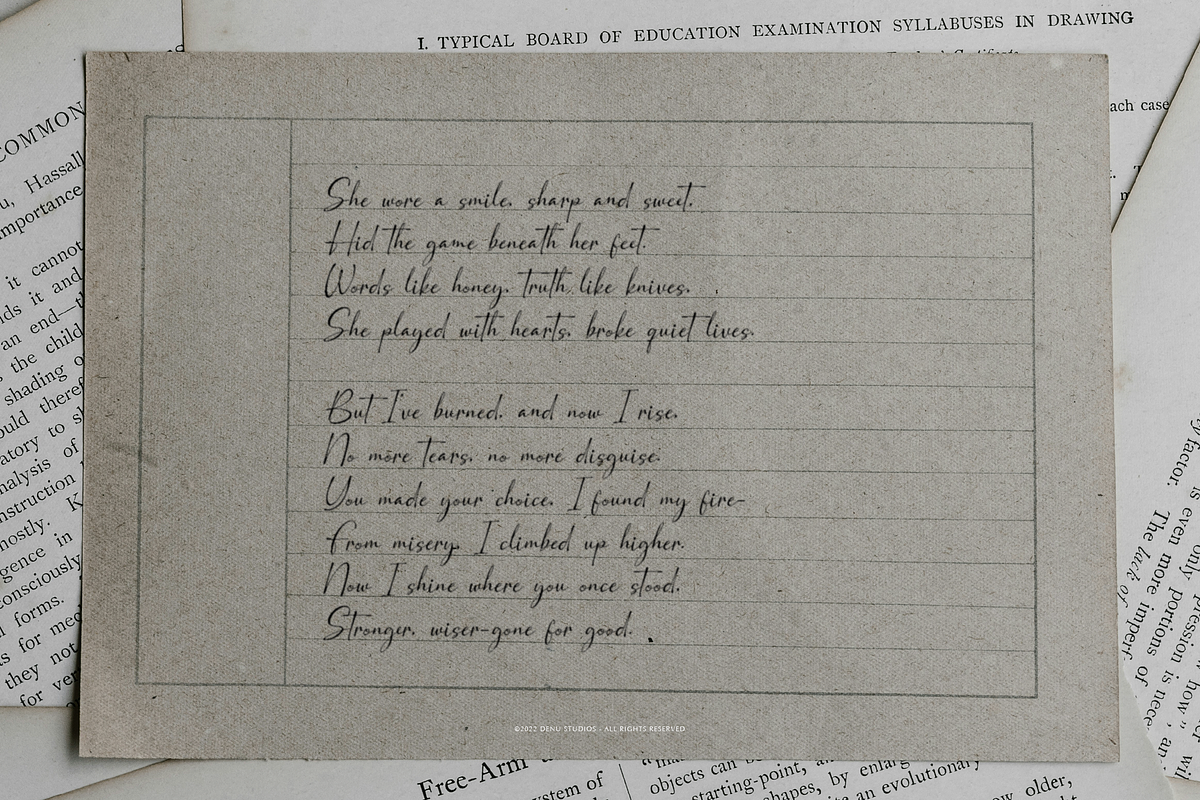 I. TYPICAL BOARD OF EDUCATION EXAMINATION SYLLABUSES IN DRAWING
each case
COMMON
Hassall
importance
it cannot
it and
an end—
the child
shading
analysis of
in
consciously
forms.
for
they not
for
She wore a smile, sharp and sweet.
Hid the game beneath her feet.
Words like honey, truth like knives.
She played with hearts, broke quiet lives.
But I've burned, and now I rise.
No more tears, no more disguise.
You made your choice, I found my fire-
From misery, I climbed up higher.
Now I shine where you once stood.
Stronger, wiser-gone for good.
©2022 DENU STUDIOS - ALL RIGHTS RESERVED
factor;
The lack of
is even more
only portions of
pression is
how",
Free-Arm
system of
objects can
starting-point,
shapes, by
an evolutionary
older,